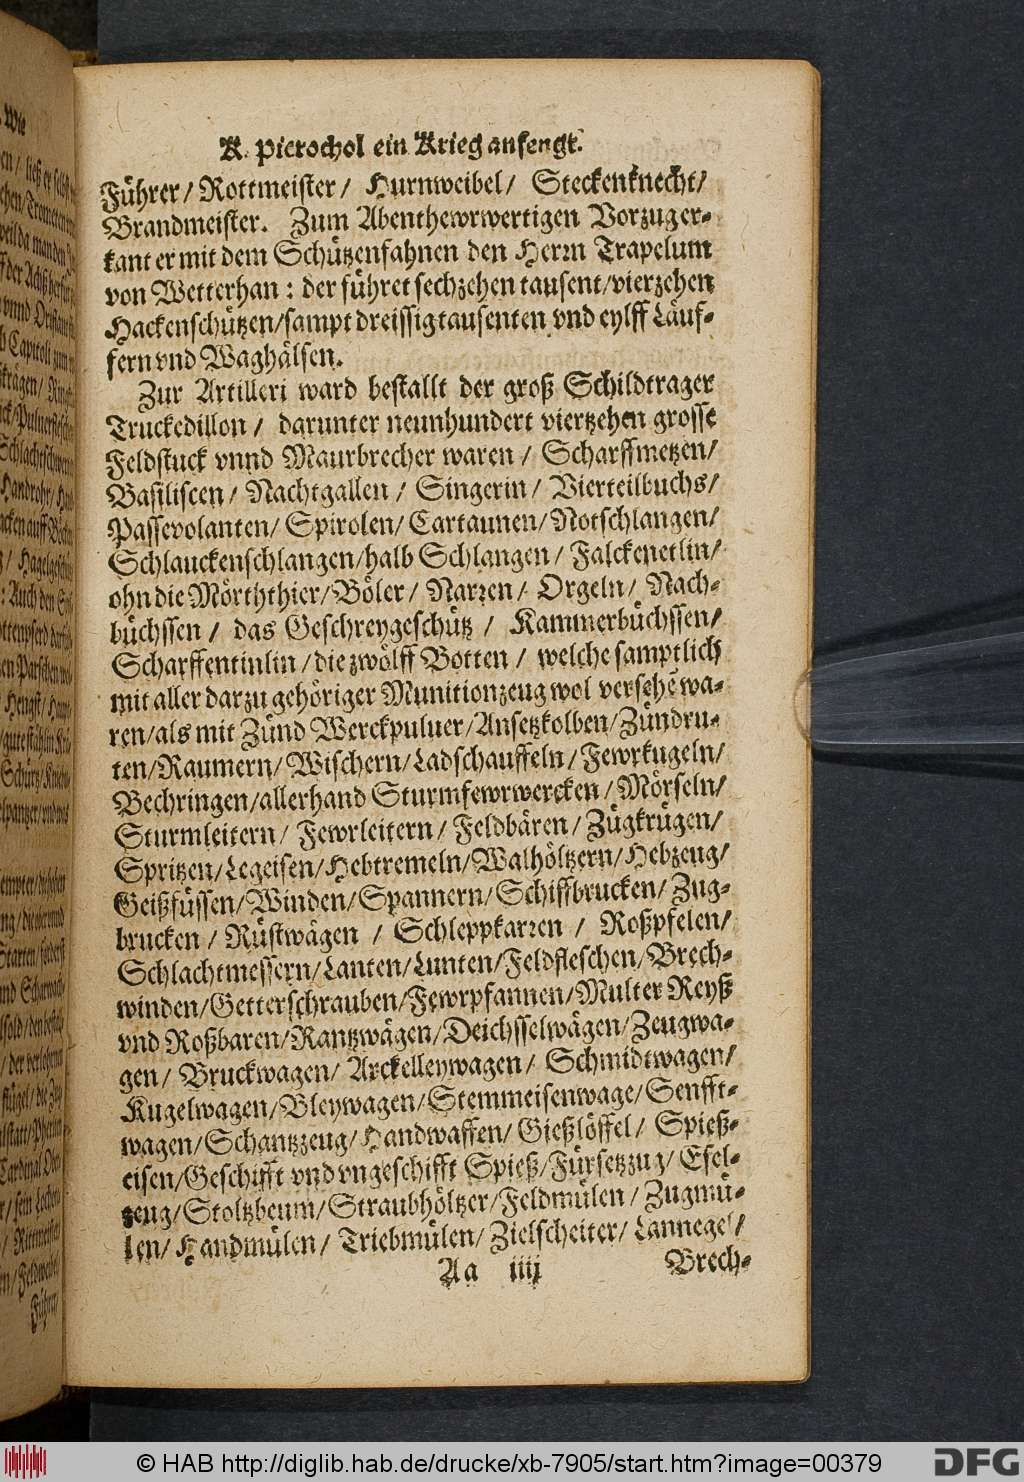 K. Picrochol ein Krieg anfengt.
Führer / Rottmeister / Hurnweibel / Steckenknecht /
Brandmeister. Zum Abenthewrwertigen Vorzug er-
kant er mit dem Schützenfahnen den Herrn Trapelum
von Wetterhan : der führet sechzehen tausent / vierzehen
Hackenschützen / sampt dreissig tausenten vnd eylff Läuf-
fern vnd Waghälsen.
Zur Artilleri ward bestallt der groß Schildtrager
Truckedillon / darunter neunhundert viertzehen grosse
Feldstuck vnnd Maurbrecher waren / Scharffmetzen /
Basiliscen / Nachtgallen / Singerin / Vierteilbuchs /
Passevolanten / Spirolen / Cartaunen / Notschlangen /
Schlauckenschlangen / halb Schlangen / Falckenetlin /
ohn die Mörththier / Böler / Narren / Orgeln / Nach-
büchssen / das Geschreygeschütz / Kammerbüchssen /
Scharffentinlin / die zwölff Botten / welche samptlich
mit aller darzu gehöriger Munitionzeug wol versehẽ wa-
ren / als mit Zünd Werckpuluer / Ansetzkolben / Zündru-
ten / Raumern / Wischern / Ladschauffeln / Fewrkugeln /
Bechringen / allerhand Sturmfewrwercken / Mörseln /
Sturmleitern / Fewrleitern / Feldbären / Zügkrügen /
Spritzen / Legeisen / Hebtremeln / Walhöltzern / Hebzeug /
Geißfüssen / Winden / Spannern / Schiffbrucken / Zug-
brucken / Rüstwägen / Schleppkarren / Roßpfelen /
Schlachtmessern / Lanten / Lunten / Feldfleschen / Brech-
winden / Getterschrauben / Fewrpfannen / Multer Reyß
vnd Roßbaren / Rantzwägen / Deichsselwägen / Zeugwa-
gen / Bruckwagen / Arckelleywagen / Schmidtwagen /
Kugelwagen / Bleywagen / Stemmeisenwage / Senfft-
wagen / Schantzzeug / Handwaffen / Gießlöffel / Spieß-
eisen / Geschifft vnd vngeschifft Spieß / Fürsetzzug / Esel-
zeug / Stoltzbeum / Straubhöltzer / Feldmülen / Zugmü-
len / Handmülen / Triebmülen / Zielscheiter / Lannegel /
Aa iiij Brech-
© HAB http://diglib.hab.de/drucke/xb-7905/start.htm?image=00379
DFG